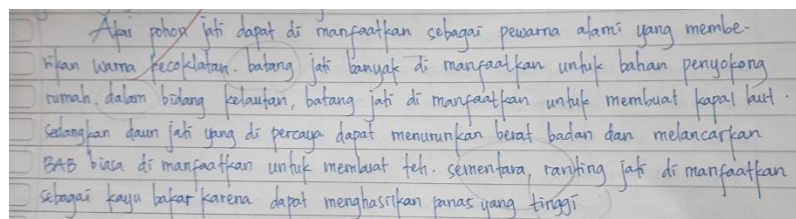 Akar pohon jati dapat di manfaatkan sebagai pewarna alami yang membe-
rikan warna kecoklatan. batang jati banyak di manfaatkan untuk bahan penyokong
rumah. dalam bidang kelautan, batang jati di manfaatkan untuk membuat kapal laut.
sedangkan daun jati yang di percaya dapat menurunkan berat badan dan melancarkan
BAB biasa di manfaatkan untuk membuat teh. sementara, ranting jati di manfaatkan
sebagai kayu bakar karena dapat menghasilkan panas yang tinggi